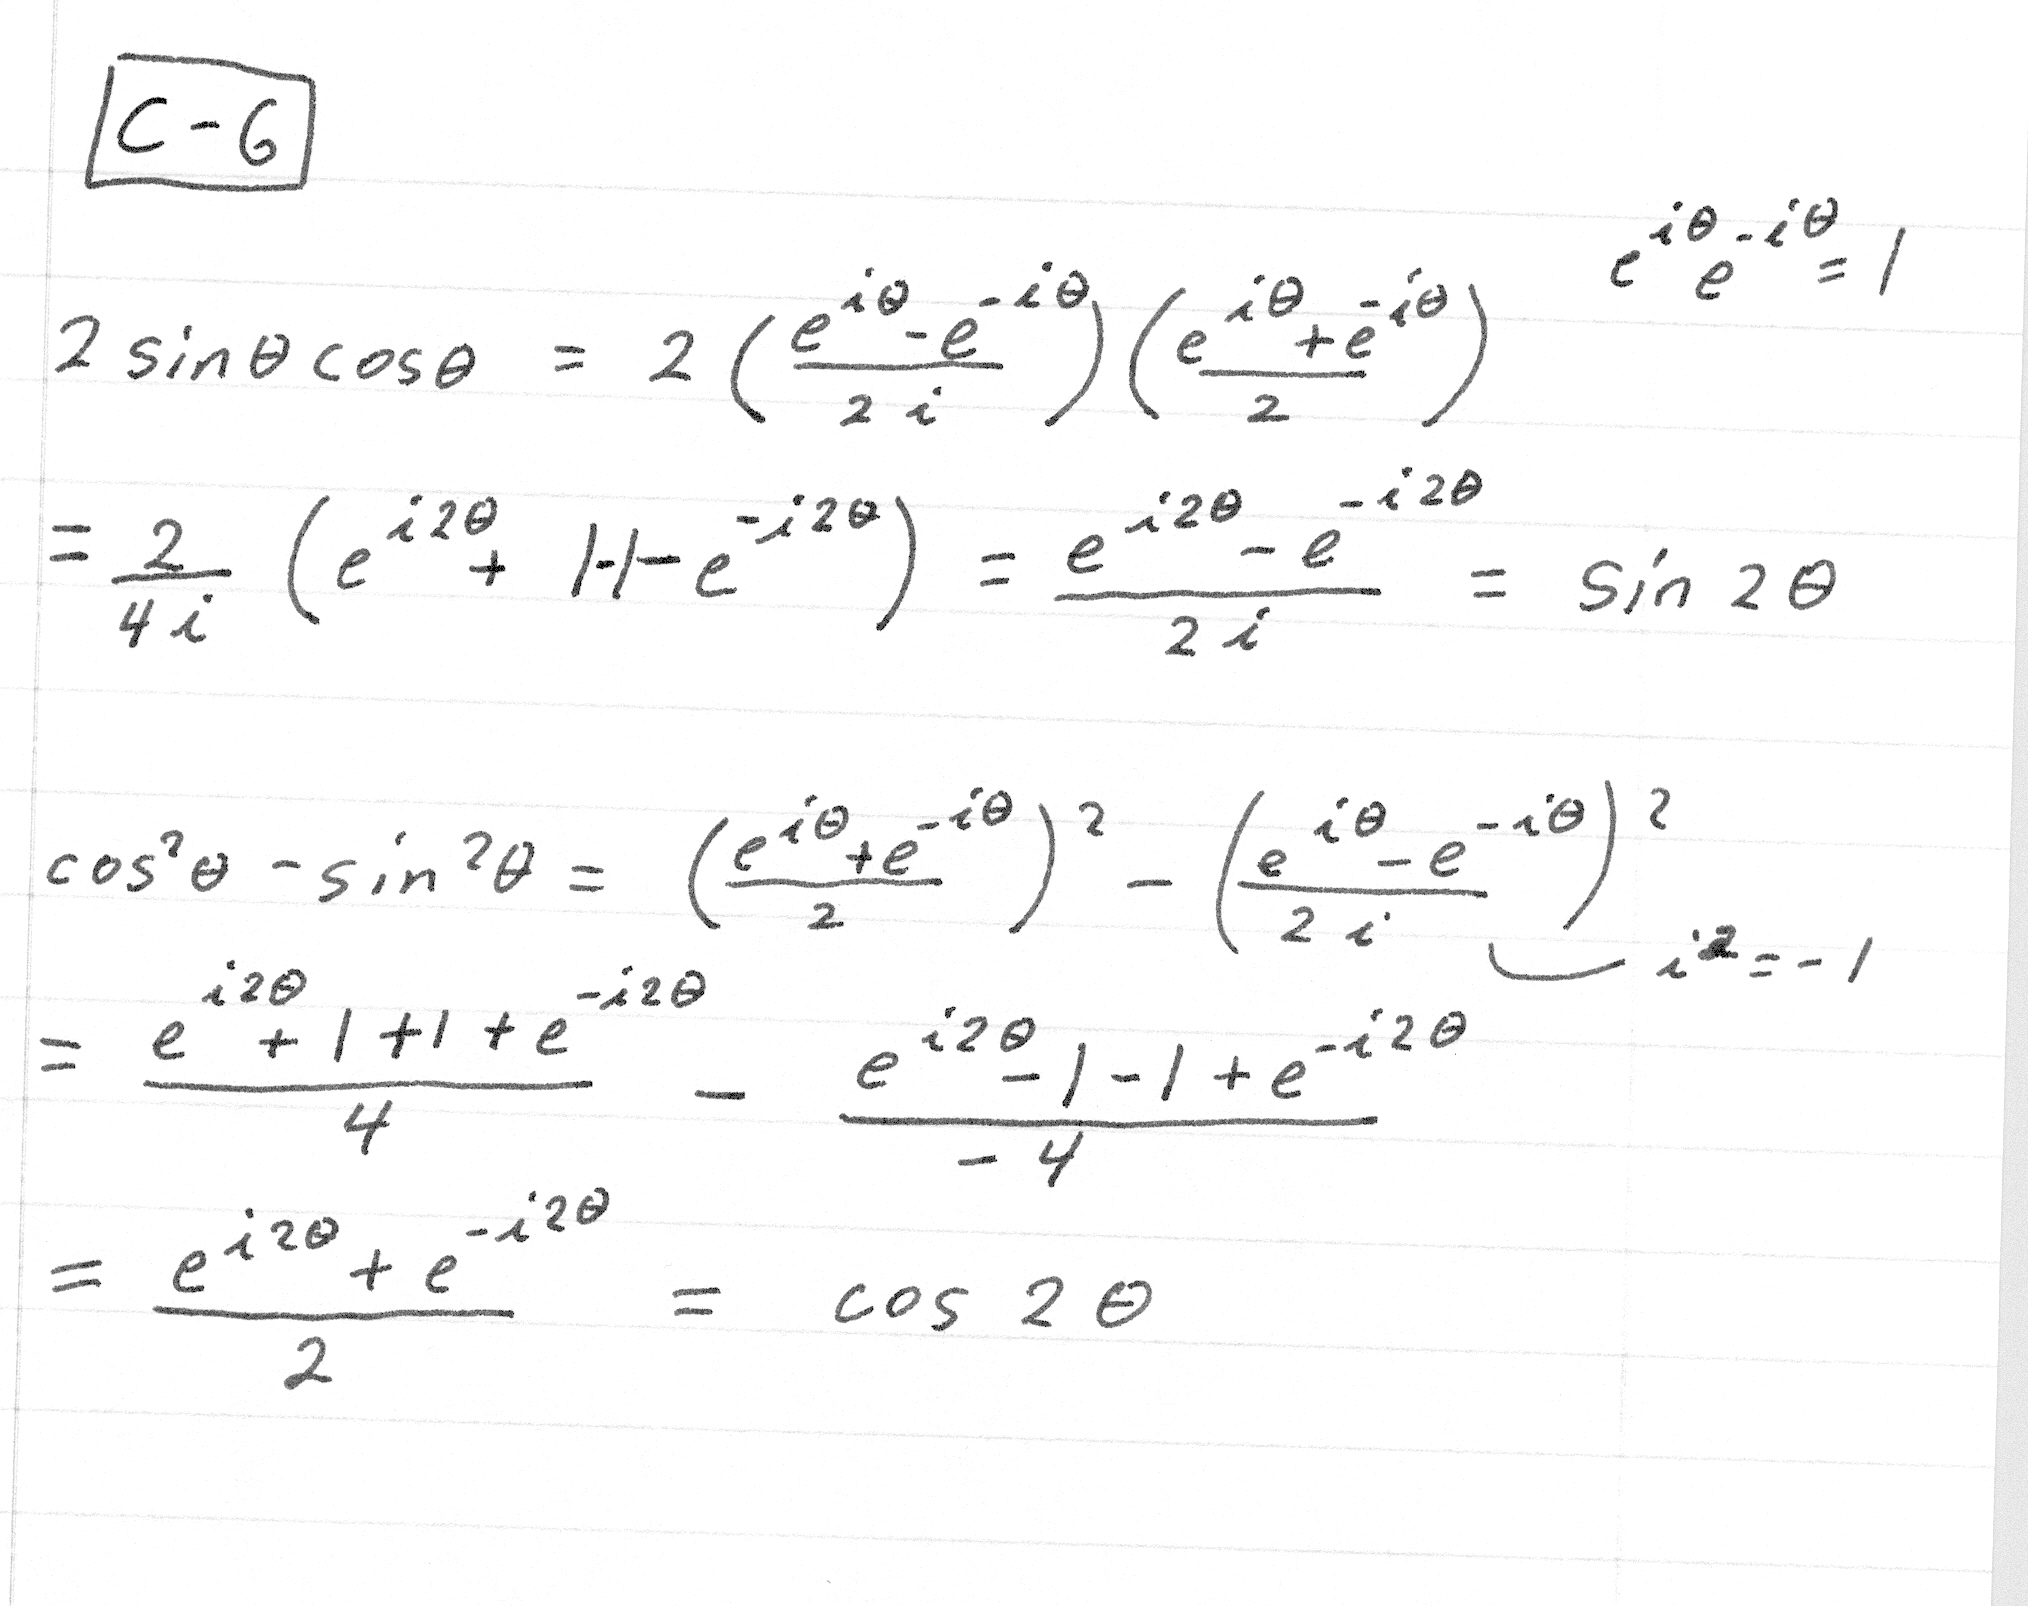 C-6
e^{iθ} e^{-iθ} = 1
2 sinθ cosθ = 2 ( (e^{iθ} - e^{-iθ}) / 2i ) ( (e^{iθ} + e^{-iθ}) / 2 )
= 2/4i ( e^{i2θ} + 1-1- e^{-i2θ} ) = (e^{i2θ} - e^{-i2θ}) / 2i = sin 2θ
cos²θ - sin²θ = ( (e^{iθ} + e^{-iθ}) / 2 )² - ( (e^{iθ} - e^{-iθ}) / 2i )²
i² = -1
= (e^{i2θ} + 1 + 1 + e^{-i2θ}) / 4 - (e^{i2θ} - 1 - 1 + e^{-i2θ}) / -4
= (e^{i2θ} + e^{-i2θ}) / 2 = cos 2θ